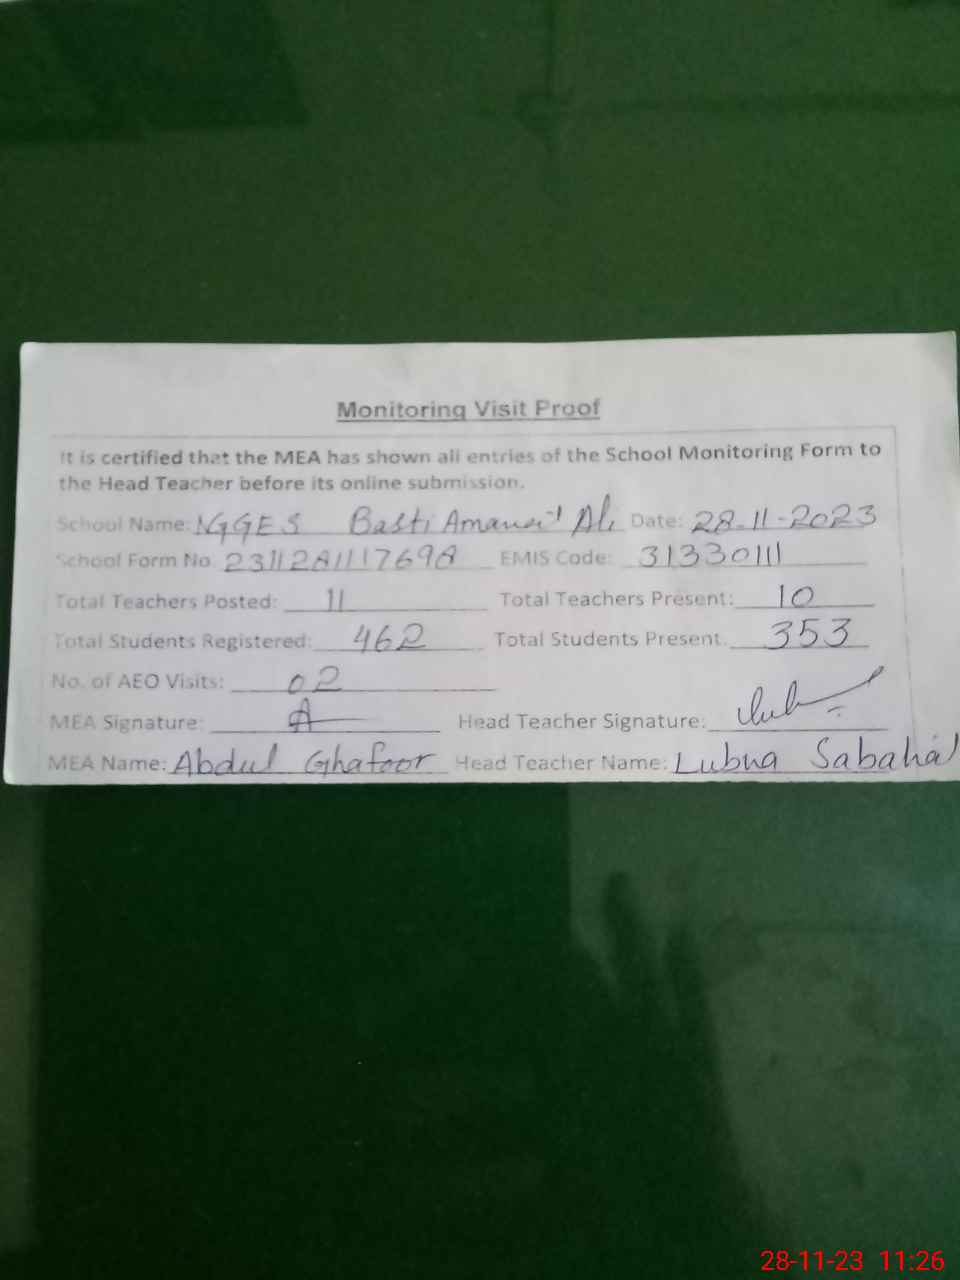 Monitoring Visit Proof
It is certified that the MEA has shown all entries of the School Monitoring Form to
the Head Teacher before its online submission.
School Name: NGGES Basti Amanat Ali Date: 28-11-2023
School Form No. 2311281117698 EMIS Code: 31330111
Total Teachers Posted: 11 Total Teachers Present: 10
Total Students Registered: 462 Total Students Present. 353
No. of AEO Visits: 02
MEA Signature: Head Teacher Signature:
MEA Name: Abdul Ghafoor Head Teacher Name: Lubna
28-11-23 11:26